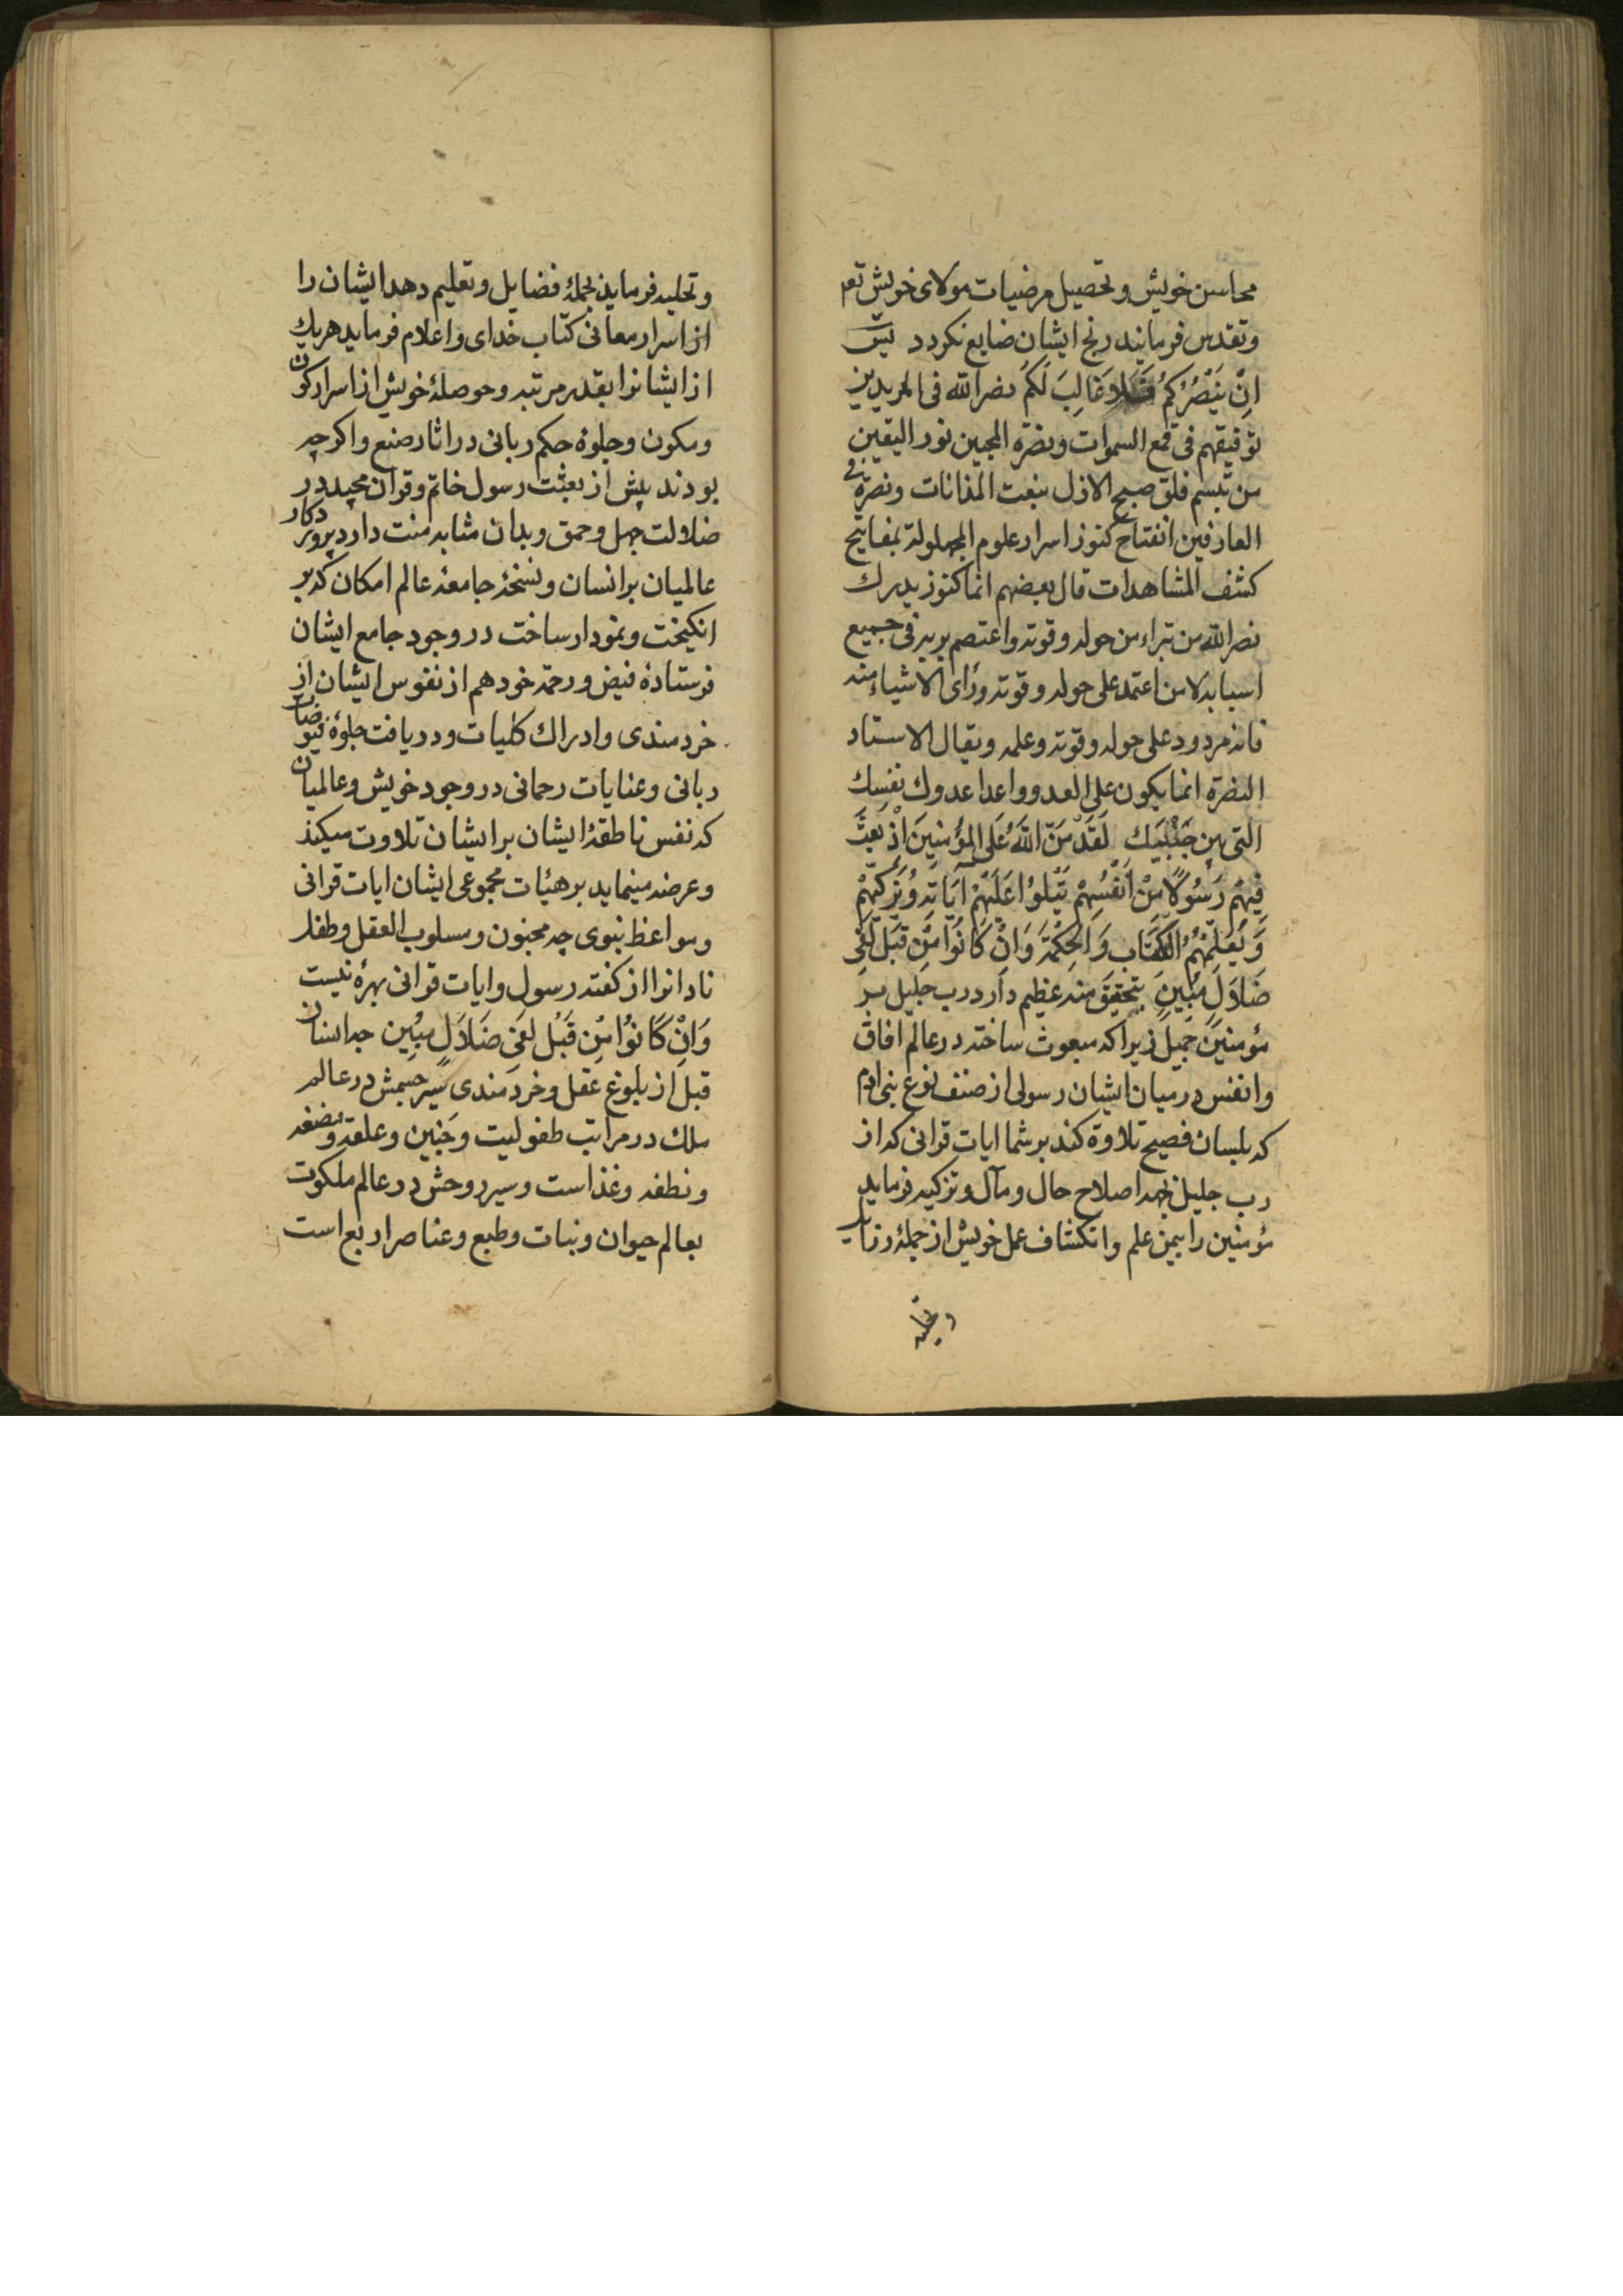 محاسن خویش و تحصیل مرضیات مولای خویش
و تقدس فرمایند رنج ایشان ضایع نکردد
اِنْ یَنْصُرْکُمُ فَلَا غَالِبَ لَکُمْ نصر الله فی المریدین
توفیقهم فی قمع السموات ونصرة المحبین نور الیقین
من تبسم فلق صبح الازل بنعت المدانات ونصرة فی
العارفین انفتاح کنوز اسرار علوم المجهولة بمفاتیح
کشف المشاهدات قال بعضهم انما یدرك
نصر الله من تبراء من حوله وقوته واعتصم بربه فی جمیع
اسبابه لا من اعتمد علی حوله وقوته ورای الاشیاء منه
فانه مردود علی حوله وقوته وعلمه ویقال الاستاد
النصرة انما یکون علی العدو واعدا عدوك نفسك
التی بین جَنْبَیك لَقَدْ مَنَّ اللهُ عَلَی المُؤْمِنِینَ اِذْ بَعَثَ
فِیهِمْ رَسُولًا مِنْ اَنْفُسِهِمْ یَتْلُوا عَلَیهِمْ آیَاتِهِ وَیُزَکِّیهِمْ
وَیُعَلِّمُهُمُ الکِتَابَ وَالحِکْمَةَ وَاِنْ کَانُوا مِنْ قَبْلُ لَفِی
ضَلَالٍ مُبِینٍ بتحقیق منه عظیم دارد رب جلیل بر
مؤمنین جمیل زیرا که مبعوث ساخته در عالم افاق
وانفس در میان ایشان رسولی از صنف نوع بنی ادم
که بلسان فصیح تلاوة کند بر شما ایات قرانی که از
رب جلیل بجهة اصلاح حال و مآل و تزکیه فرماید
مؤمنین را بیمن علم وانکشاف عمل خویش از جملهٔ
وتحلیه
وتحلیه فرماید بجملهٔ فضایل وتعلیم دهد ایشان را
از اسرار معانی کتاب خدای واعلام فرماید هریك
از ایشانرا بقدر مرتبه وحوصلهٔ خویش از اسرار کون
ومکون وجلوهٔ حکم ربانی در اثار صنع واکرچه
بودند پیش از بعثت رسول خاتم وقران مجید در
ضلالت جهل وحمق وبدان مثابه منت دارد پروردکار
عالمیان بر انسان ونسخهٔ جامعهٔ عالم امکان که بر
انکیخت ونمودار ساخت در وجود جامع ایشان
فرستادهٔ فیض ورحمة خود هم از نفوس ایشان از
خردمندی وادراك کلیات ودریافت جلوهٔ فیوضات
ربانی وعنایات رحمانی در وجود خویش وعالمیان
که نفس ناطقهٔ ایشان بر ایشان تلاوت میکند
وعرضه مینماید بر هیئات مجموعی ایشان ایات قرانی
ومواعظ نبوی چه مجنون ومسلوب العقل وطفل
نادانرا از کفته رسول وایات قرانی بهرهٔ نیست
وَاِنْ کَانُوا مِنْ قَبْلُ لَفِی ضَلَالٍ مُبِین چه انسان
قبل از بلوغ عقل وخردمندی سیر جسمش در عالم
ملك در مراتب طفولیت وجنین وعلقه ومضغه
ونطفه وغذاست وسیر روحش در عالم ملکوت
بعالم حیوان ونبات وطبع وعناصر اربع است